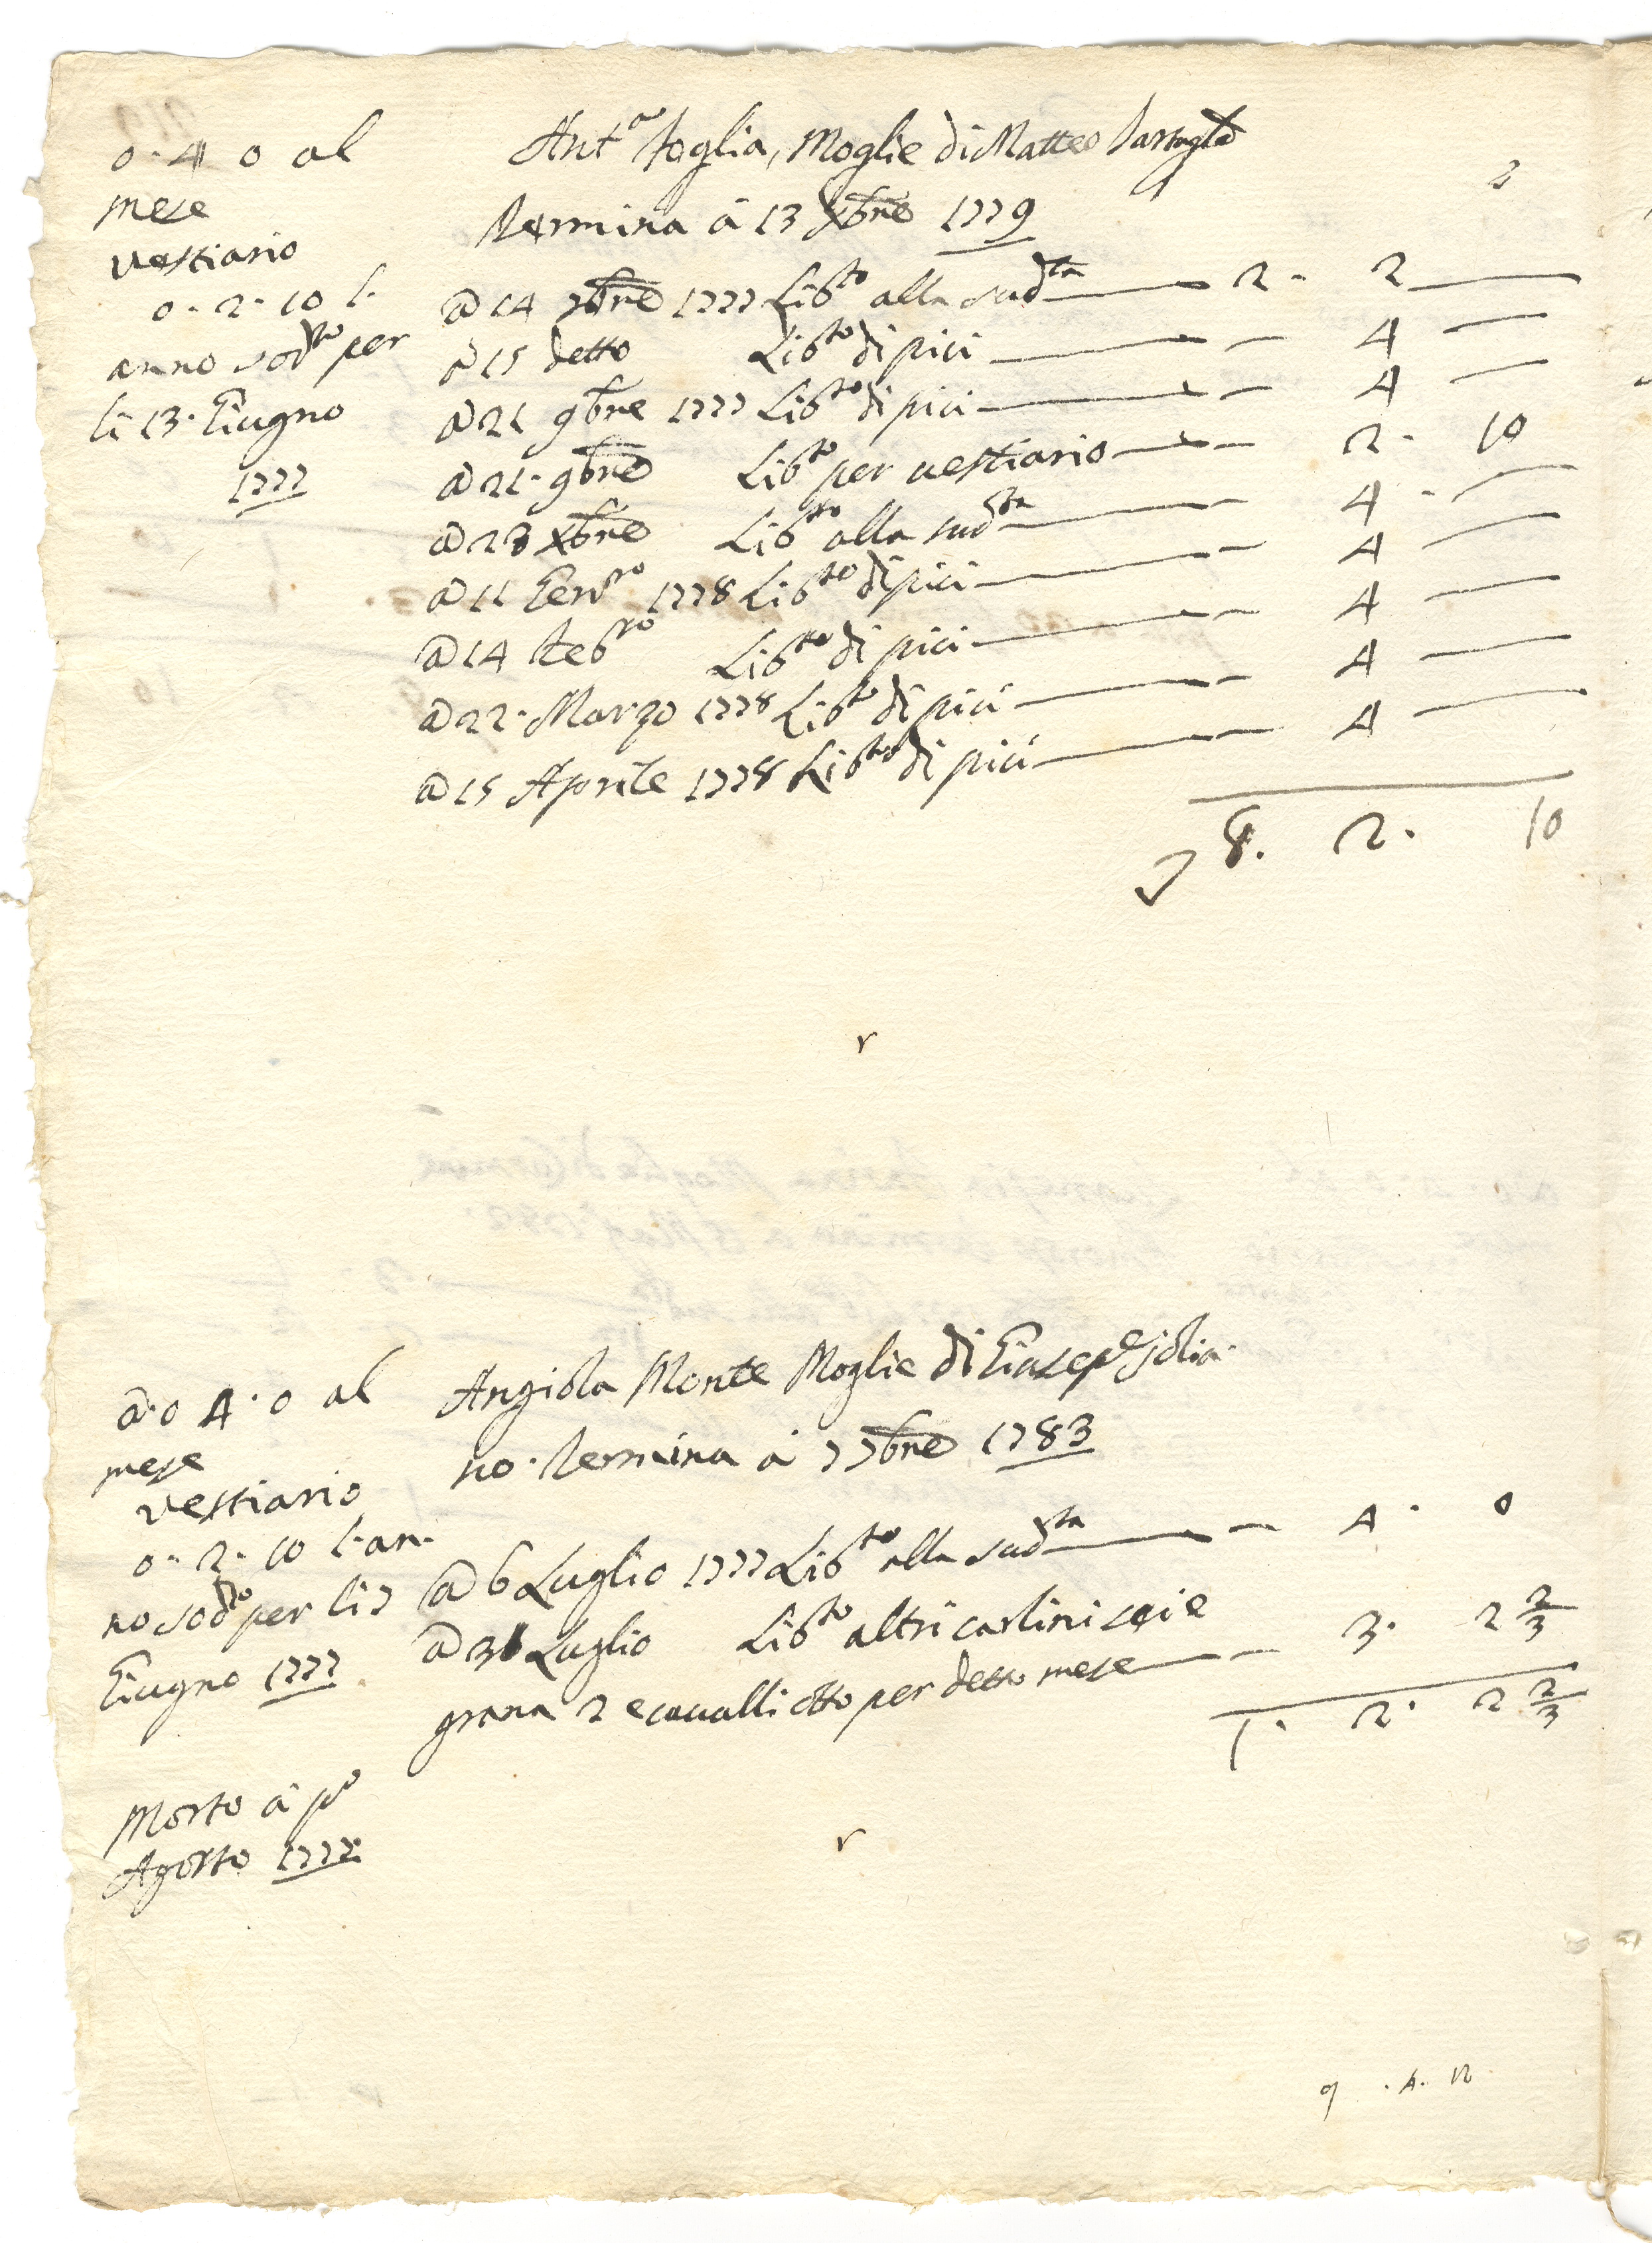 0 · 4 0 al
mese
vestiario
0 · 2 · 10 l·
anno sod.to per
li 13 · Giugno
1777
Ant.a Foglia, Moglie di Matteo
termina à 13 Xbre 1779
a 14 7bre 1777 Lib.to alla sud.ta 2 · 2
a 15 detto Lib.to di più 4
a 21 9bre 1777 Lib.to di più 4
a 21 · 9bre Lib.to per vestiario 2 · 10
a 23 Xbre Lib.to alla sud.ta 4
a 11 Gen.ro 1778 Lib.to di più 4
a 14 Feb.ro Lib.to di più 4
a 22 · Marzo 1778 Lib.to di più 4
a 15 Aprile 1778 Lib.to di più 4
8 · 2 · 10
a · 0 4 · 0 al
mese
vestiario
0 · 2 · 10 l · an·
no sod.to per li 7
Giugno 1777
Angiola Monte Moglie di Giusep.e Jolia·
no · termina à 7 7bre 1783
a 6 Luglio 1777 Lib.to alla sud.ta 4 · 0
a 31 Luglio Lib.to altri carlini sei e
grana 2 e cavalli otto per detto mese 3 · 2 2/3
1 · 2 · 2 2/3
Morto à p.o
Agosto 1777
9 · 4 · 12